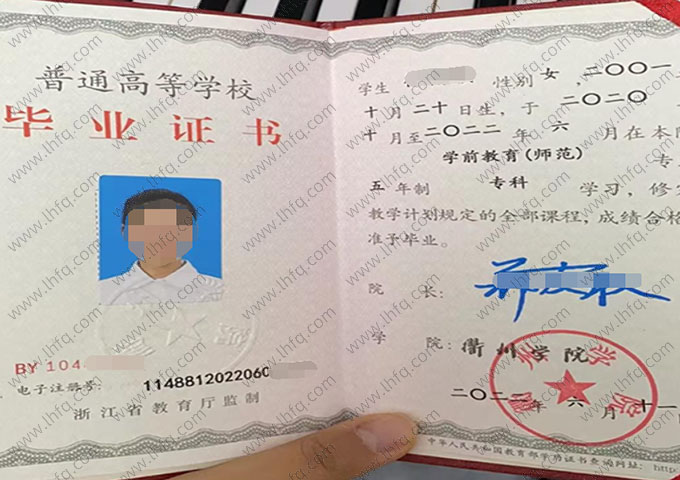 普通高等学校
毕业证书
BY 104
电子注册号： 1148812022060
浙江省教育厅监制
学生 性别 女，二〇〇一
十月二十日生，于二〇二〇
十月至二〇二二年六月在本
学前教育(师范) 专
五年制 专科 学习，修完
教学计划规定的全部课程，成绩合格
准予毕业。
院 长：
学 院：衢州学院
二〇二二年 六月 十一
中华人民共和国教育部学历证书查询网址：http:
www.lhfq.com